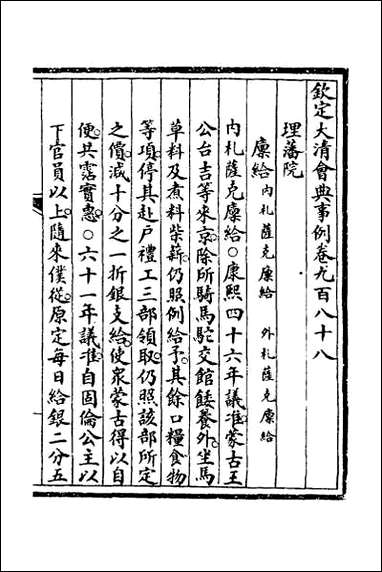 欽定大清會典事例卷九百八十八
理藩院
廩給 內札薩克廩給 外札薩克廩給
內札薩克廩給○康熙四十六年議准蒙古王
公台吉等來京除所騎馬駝交館餧養外坐馬
草料及煮料柴薪仍照例給予其餘口糧食物
等項停其赴戶禮工三部領取仍照該部所定
之價減十分之一折銀支給使眾蒙古得以自
便共霑實惠○六十一年議准自固倫公主以
下官員以上隨來僕從原定每日給銀二分五